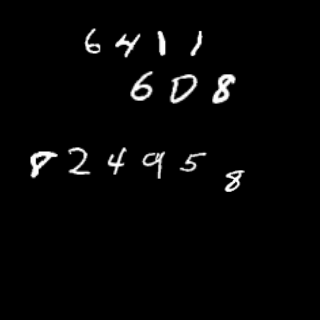 6411
608
824958